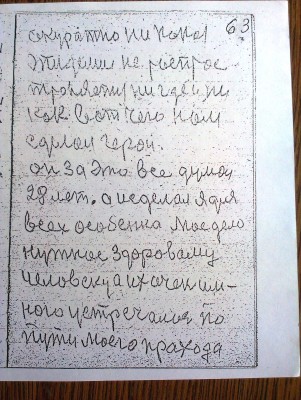 63
акуратно ни кокой
эпидеми не ростро
нигде ни
как вот чего нам
сделал герой.
он за эта все думал
28 лет. а исделал я для
всех особенка мое дело
нужное здоровому
человеку а их очен им-
ного устречалися по
пути моего прахода